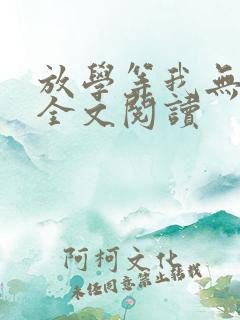 放學等我無
全文閱讀
阿柯文化
未经同意禁止转载